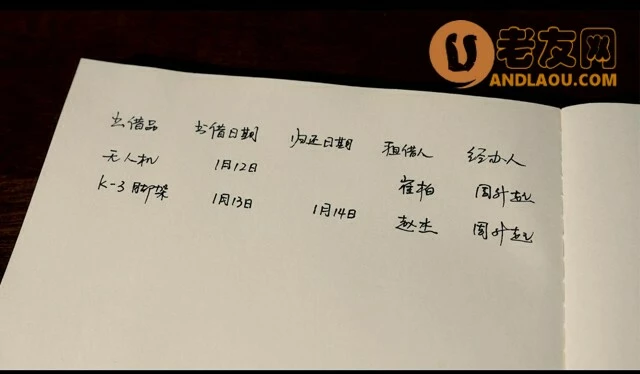 老友网
ANDLAOU.COM
出借品 出借日期 归还日期 租借人 经办人
无人机 1月12日 崔柏 周升起
K-3脚架 1月13日 1月14日 赵杰 周升起